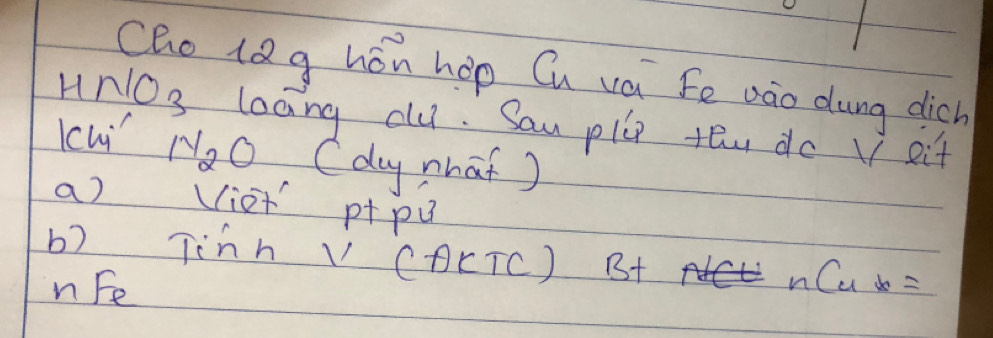 Cho 12g hỗn hợp Cu và Fe vào dung dịch
HNO3 loãng dư. Sau pứ thu đc V lít
khí N2O (duy nhất)
a) Viết pt pứ
b) Tính V (ĐKTC) Bt nCu =
nFe